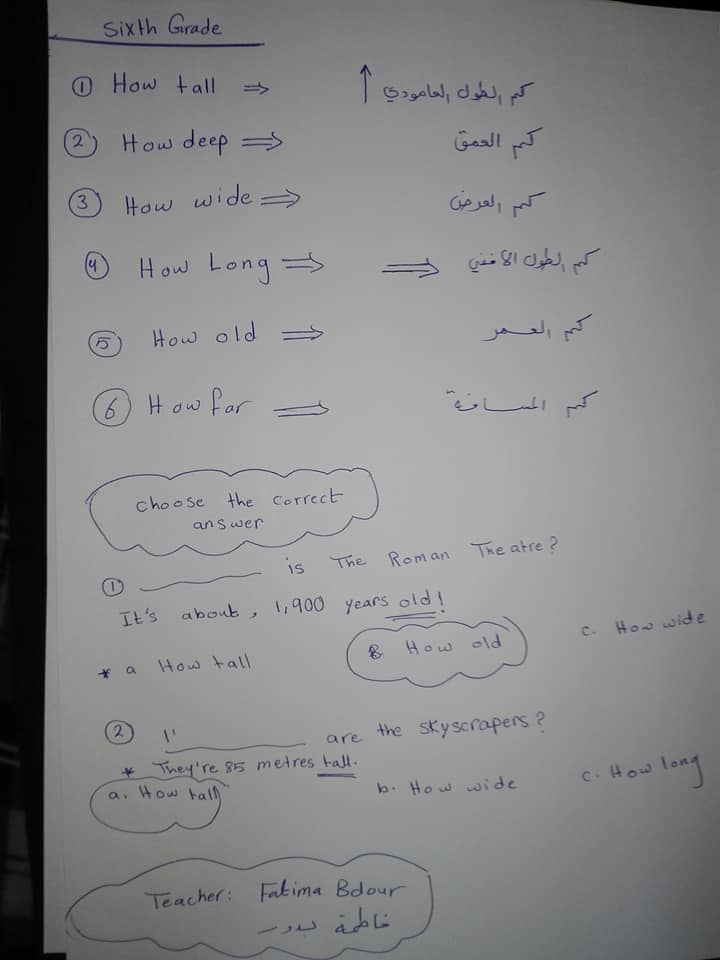 Sixth Grade
① How tall ⇒ ↑ كم الطول العامودي
② How deep ⇒ كم العمق
③ How wide ⇒ كم العرض
④ How Long ⇒ ⇒ كم الطول الأفقي
⑤ How old ⇒ كم العمر
⑥ How far ⇒ كم المسافة
choose the correct
answer
① ________ is The Roman Theatre?
It's about, 1,900 years old!
* a How tall B How old c. How wide
② ________ are the skyscrapers?
* They're 85 metres tall.
a. How tall b. How wide c. How long
Teacher: Fatima Bdour
فاطمة بدور